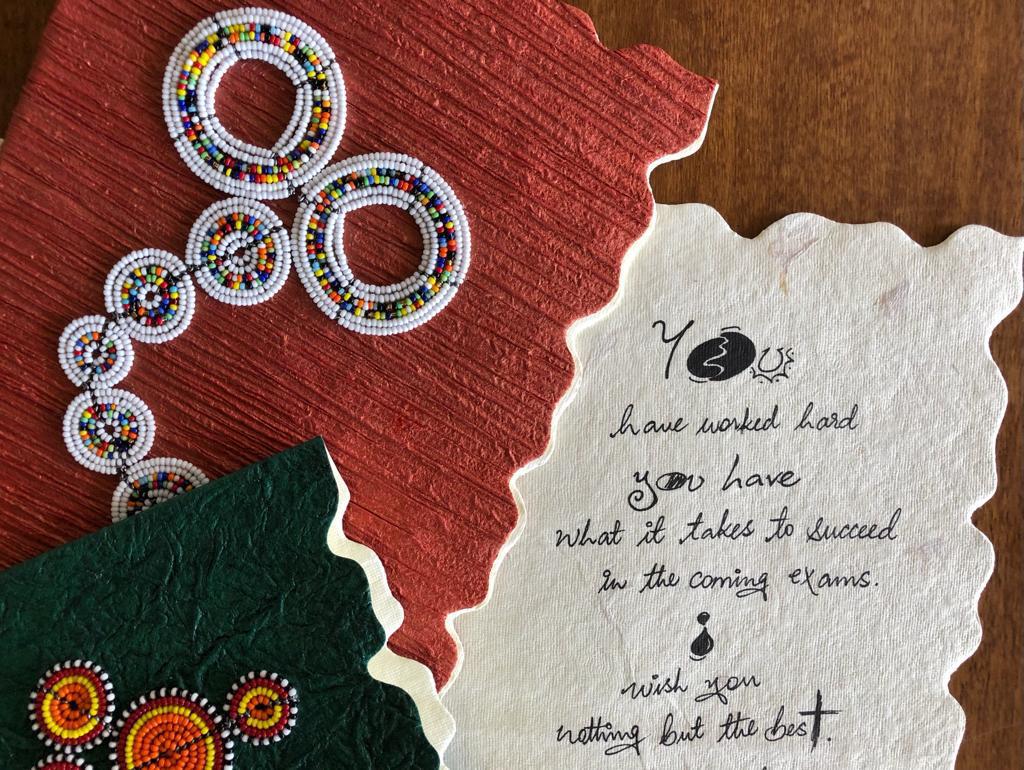 You
have worked hard
you have
what it takes to succeed
in the coming exams.
i
wish you
nothing but the best.